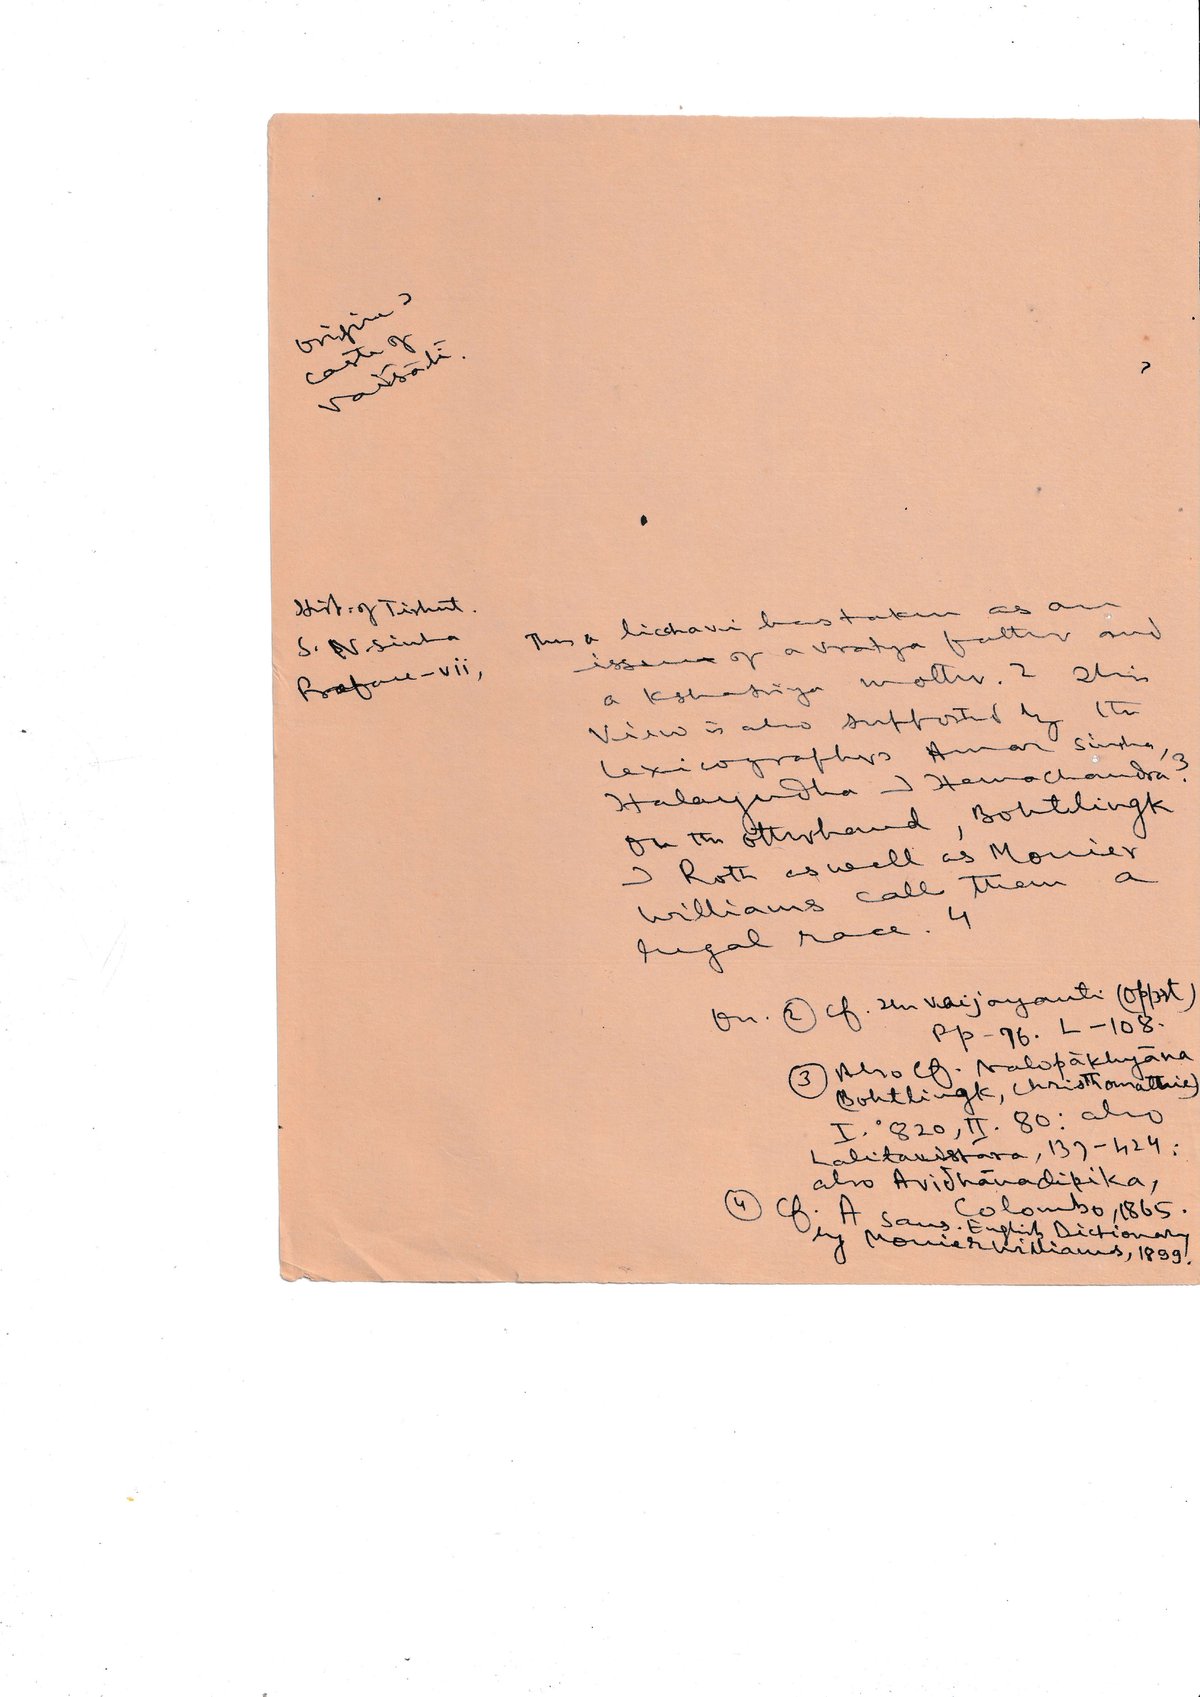 origin &
caste of
Vaiśālī.
Hist. of Tirhut.
S. N. Sinha
Preface-vii,
Thus a licchavi has taken as an
issue of a vratya father and
a Kshatriya mother. 2 This
view is also supported by the
Lexicographers Amar Sinha,
Halayudha & Hemachandra. 3
On the otherhand, Bohtlingk
& Roth as well as Monier
Williams call them a
regal race. 4
② Cf. The Vaijayanti (Oppert)
Pp-76. L-108.
③ Also Cf. Nalopākhyāna
(Bohtlingk, Christhomathie)
I. 820, II. 80: also
Lalitavistāra, 137-424:
also Avidhānadipika,
Colombo, 1865.
④ Cf. A Sans. English Dictionary
by Monier Williams, 1899.